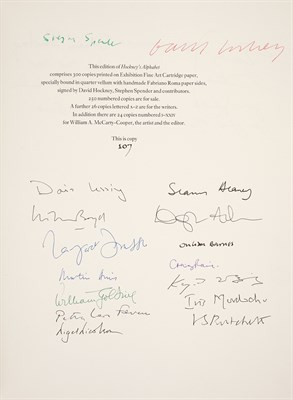 Stephen Spender David Hockney
This edition of Hockney's Alphabet
comprises 300 copies printed on Exhibition Fine Art Cartridge paper,
specially bound in quarter vellum with handmade Fabriano Roma paper sides,
signed by David Hockney, Stephen Spender and contributors.
250 numbered copies are for sale.
A further 26 copies lettered A–Z are for the writers.
In addition there are 24 copies numbered I–XXIV
for William A. McCarty-Cooper, the artist and the editor.
This is copy
107
Doris Lessing Seamus Heaney
William Boyd Douglas Adams
Margaret Drabble Julian Barnes
Martin Amis Craig Raine
William Golding Kazuo Ishiguro
Patrick Leigh Fermor Iris Murdoch
Nigel Nicolson V S Pritchett